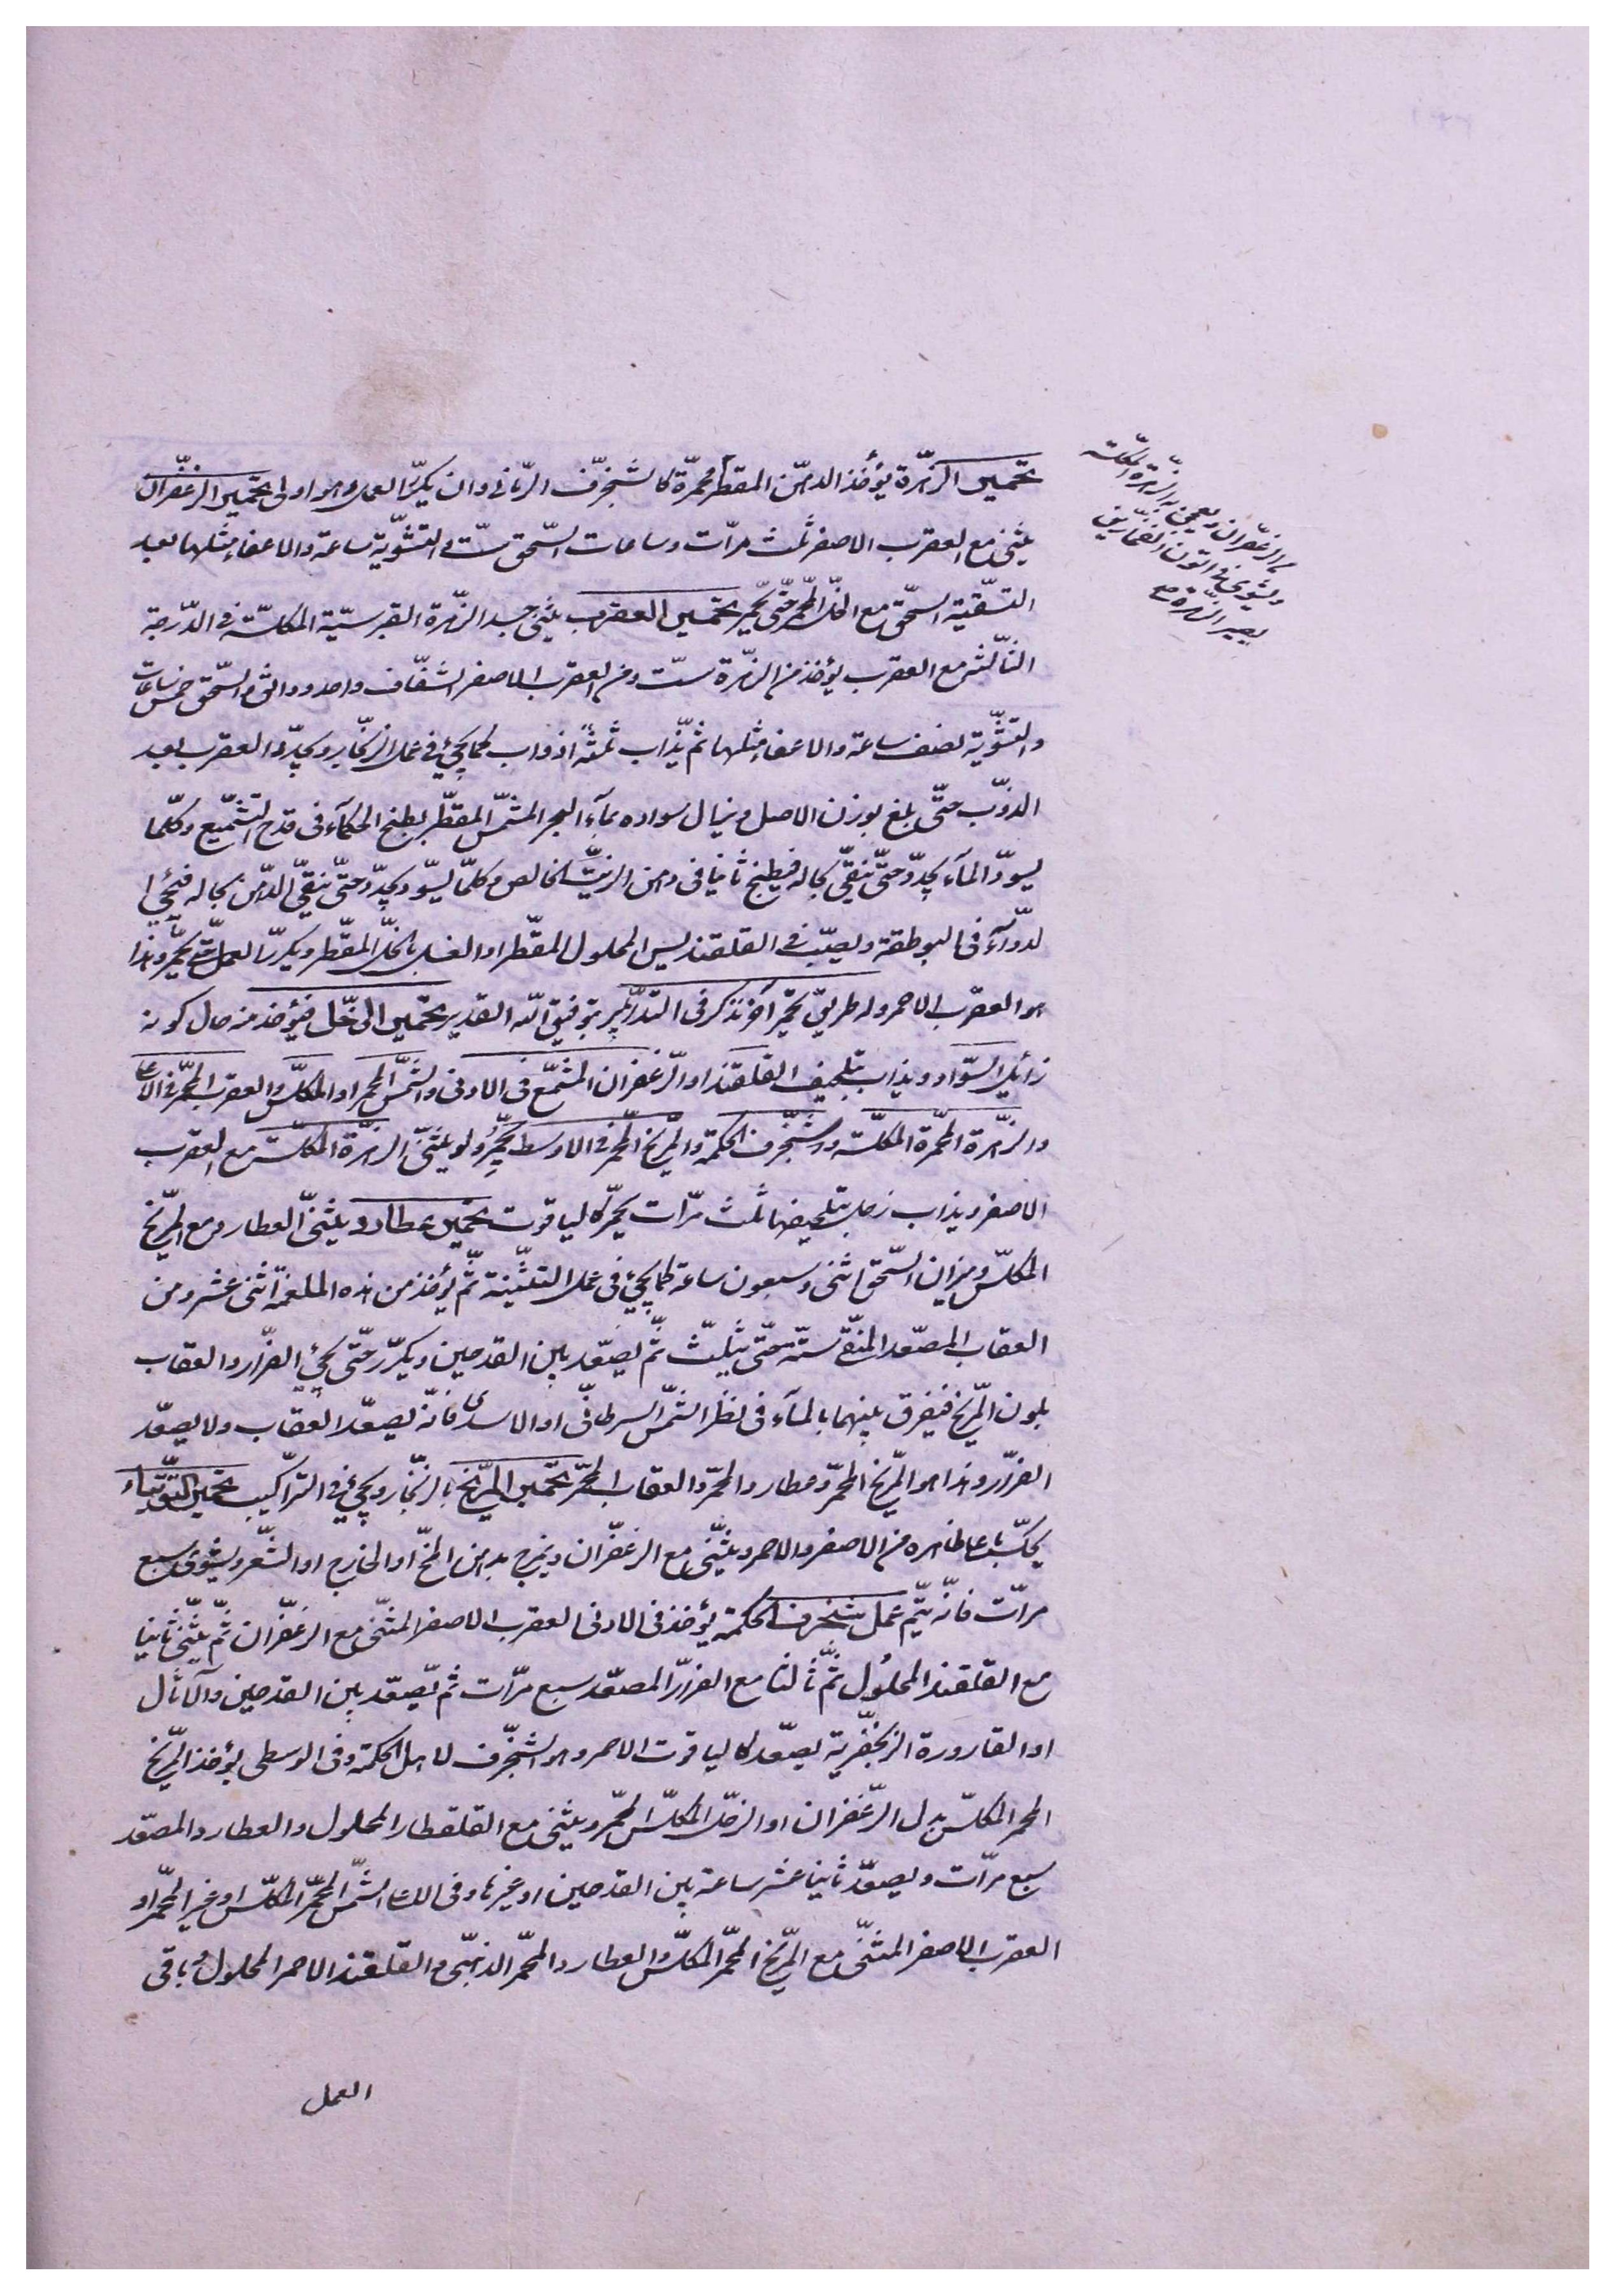 تحمير الزهرة يؤخذ الدهن المقطر محمرة كالشنجرف الرماني وان يكرر العمل هو اولى تحمير الزعفران
يثنى مع العقرب الاصفر ثلث مرات وساعات السحق ست والتشوية ساعة والاعفاء مثلها بعد
التسقية السحق مع الخل المحمر حتى يحمر تحمير العقرب يثنى جسد الزهرة القبرسية المكلسة في الدرجة
الثالثة مع العقرب يؤخذ من الزهرة ست ومن العقرب الاصفر الشفاف واحد ودانق والسحق خمس ساعات
والتشوية نصف ساعة والاعفاء مثلها ثم يذاب ثلثة اذواب كما يجئ في عمل الزنجار ويجدد العقرب بعد
الذوب حتى بلغ بوزن الاصل ويزال سواده بماء البحر المشمس المقطر بطبخ الحكماء في قدح التشميع وكلما
يسود الماء يجدد حتى ينقى بحاله فيطبخ ثانيا في دهن الزيت الخالص وكلما يسود يجدد حتى ينقى الدهن بحاله فيجئ ا
لدواء في البوطقة ويصب في القلقنديس المحلول المقطر او الغسل بالخل المقطر ويكرر العمل حتى يحمر وهذا
هو العقرب الاحمر وله طريق تحمير آخر نذكر في التدبير بتوفيق الله القدير تحمير الزحل فيؤخذ منه حال كونه
زائل السواد ويذاب بتلحيف القلقند او الزعفران المشمع في الادنى والشمس المحمر او المكلس والعقرب المحمر في الاعلى
والزهرة المحمرة المكلسة وشنجرف الحكمة والمريخ المحمر في الاوسط يحمر ولو يثنى الزهرة المكلسة مع العقرب
الاصفر ويذاب زحل بتلحيفها ثلث مرات يحمر كالياقوت تحمير عطارد يثنى العطارد مع المريخ
المكلس وميزان السحق اثنى وسبعون ساعة كما يجئ في عمل التثنية ثم يؤخذ من هذه الملغمة اثنى عشر ومن
العقاب المصعد المنقى ستة حتى يثلث ثم يصعد بين القدحين ويكرر حتى يجئ الفرار والعقاب
بلون المريخ فيفرق بينهما بالماء في نظر الشمس السرطاني او الاسدى فانه يصعد العقاب ولا يصعد
الفرار وهذا هو المريخ المحمر وعطارد المحمر والعقاب المحمر تحمير المريخ بالزنجار ويجئ في التراكيب تحمير التوتياء
يكتب على ظاهره من الاصفر والاحمر ويثنى مع الزعفران ويمزج بدهن المخ او الخارج او الشعر ويشوى سبع
مرات فانه يتم عمل شنجرف الحكمة يؤخذ في الادنى العقرب الاصفر المثنى مع الزعفران ثم يثنى ثانيا
مع القلقند المحلول ثم ثالثا مع الفرار المصعد سبع مرات ثم يصعد بين القدحين والاثال
او القارورة الزنجفرية يصعد كالياقوت الاحمر وهو الشنجرف لاهل الحكمة وفى الوسطى يؤخذ المريخ
المحمر المكلس بدل الزعفران او الزحل المكلس المحمر ويثنى مع القلقطار المحلول والعطارد المصعد
سبع مرات ويصعد ثانيا عشر ساعة بين القدحين او غيرها وفى الاعلى الشمس المحمر المكلس او غير المحمر او
العقرب الاصفر المثنى مع المريخ المحمر المكلس والعطارد المحمر الذهبى والقلقند الاحمر المحلول وباقى
العمل
الزعفران ويعجن به الزهرة المكلسة
ويشوى في اتون الفخارين
يصير الزهرة صح